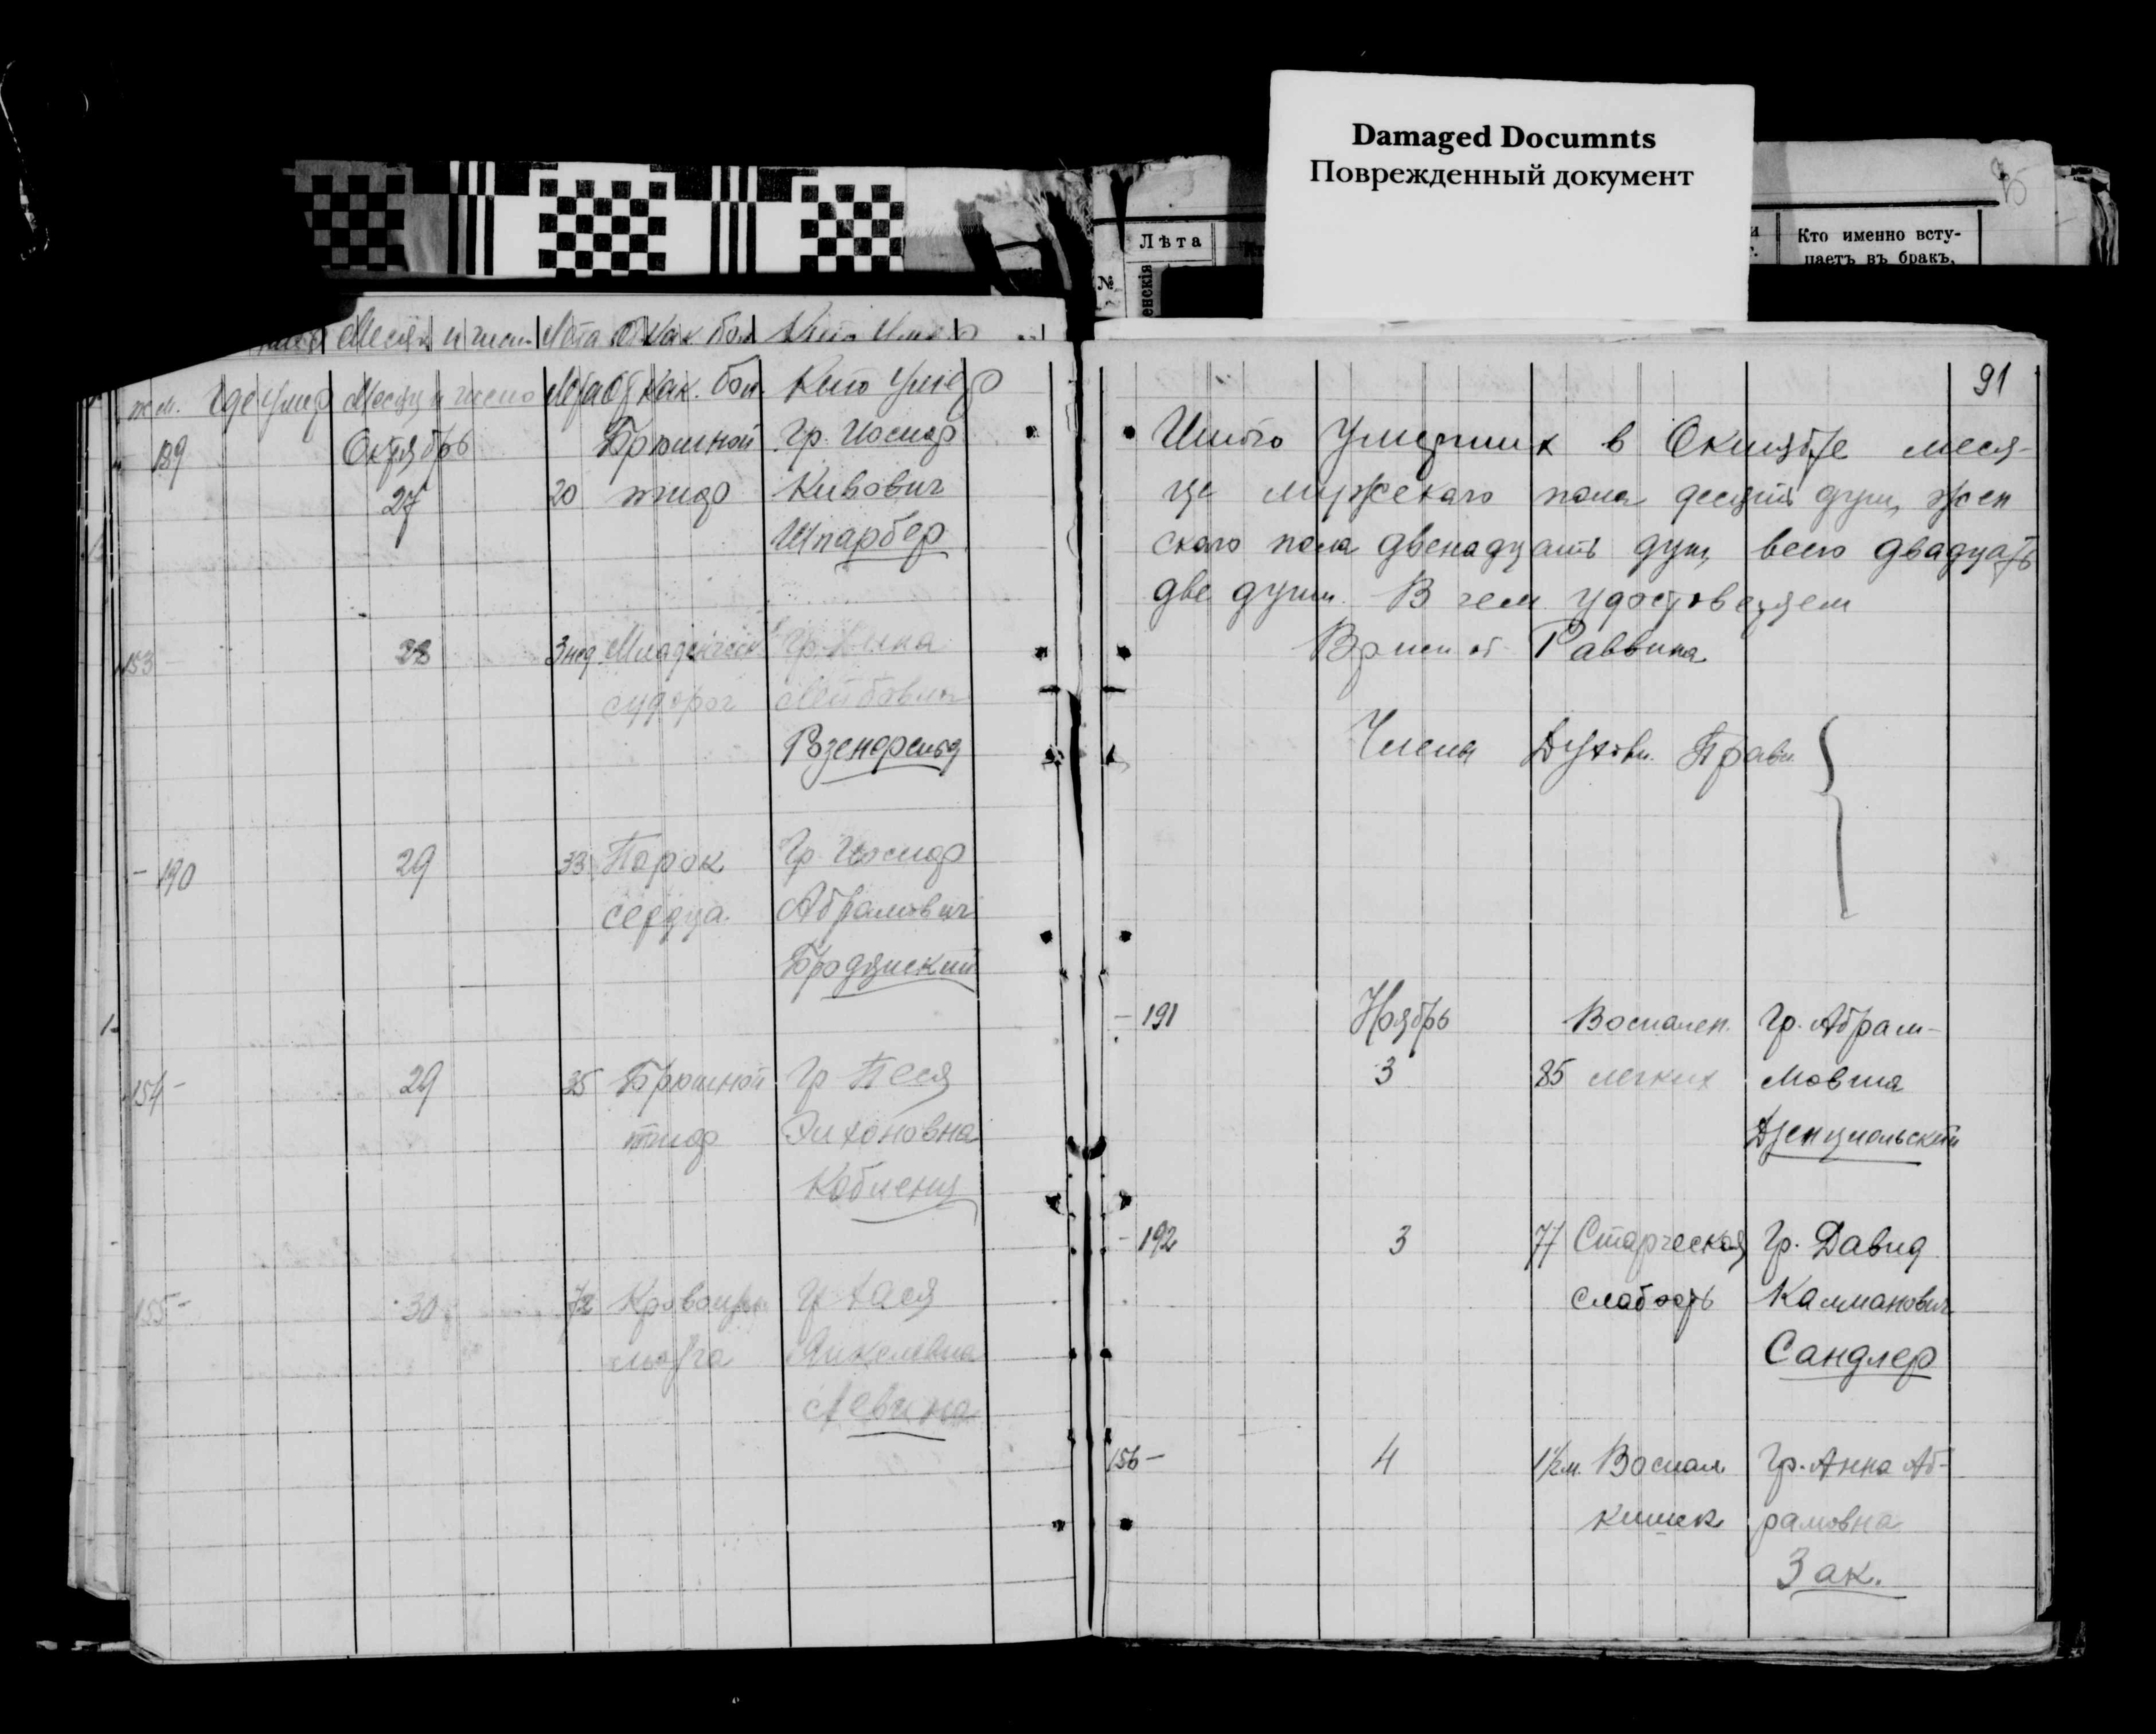 Damaged Documnts
Поврежденный документ
Лѣта
№
Кто именно всту-
паетъ въ бракъ,
Месяц и число Лета От как. бол. Кто умер
жм. Где умер Месяц и число Лета От как. бол. Кто умер
189 Октябрь Брюшной Гр. Иосиф
27 20 тиф Кивович
Шпарбер
153 28 3 нед. Младенческ. Гр.
судорог Лейбович
Розенфельд
190 29 33 Порок Гр. Иосиф
сердца. Абрамович
Бродзиский
154 29 35 Брюшной Гр Песя
тиф Элхоновна
Кобленц
155 30 72 Кровоизл. Гр Хася
мозга Янкелевна
Левина
91
Итого умерших в Октябре меся-
це мужского пола десять душ, жен
ского пола двенадцать душ, всего двадцать
две души. В чем удостоверяем
Врем. от Раввина
Члены Духовн. Правл.
191 Ноябрь Воспален. Гр. Абрам-
3 85 легких Мовша
192 3 77 Старческая Гр. Давид
слабость Калманович
Сандлер
156 4 1½ м. Воспал Гр. Анна Аб-
кишек рамовна
Зак.